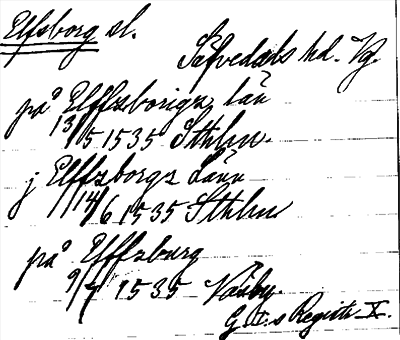 Elfsborg sl.
Säfvedals hd. Vg.
på Elffzborigz län
13/5 1535 Sthlm.
j Elffzborgz Länn
14/6 1535 Sthlm
på Elffzburg
9/7 1535 Väsby.
G. I:s Registr. X.